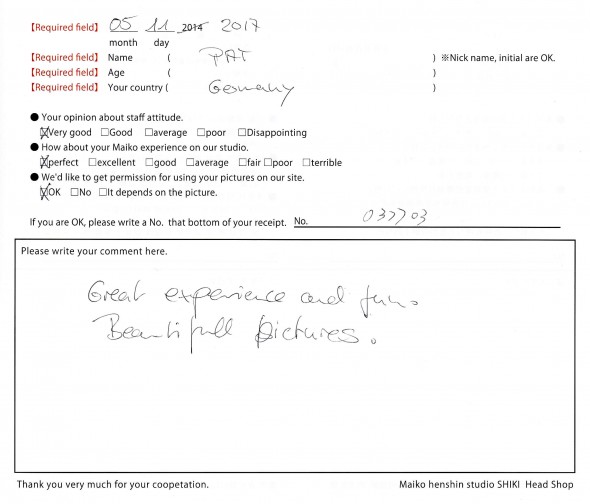 【Required field】 05 11 2014 2017
month day
【Required field】 Name ( PAT ) ※Nick name, initial are OK.
【Required field】 Age ( )
【Required field】 Your country ( Germany )
● Your opinion about staff attitude.
☒Very good □Good □average □poor □Disappointing
● How about your Maiko experience on our studio.
☒perfect □excellent □good □average □fair □poor □terrible
● We'd like to get permission for using your pictures on our site.
☒OK □No □It depends on the picture.
If you are OK, please write a No. that bottom of your receipt. No. 037703
Please write your comment here.
Great experience and fun.
Beautifull pictures.
Thank you very much for your coopetation. Maiko henshin studio SHIKI Head Shop